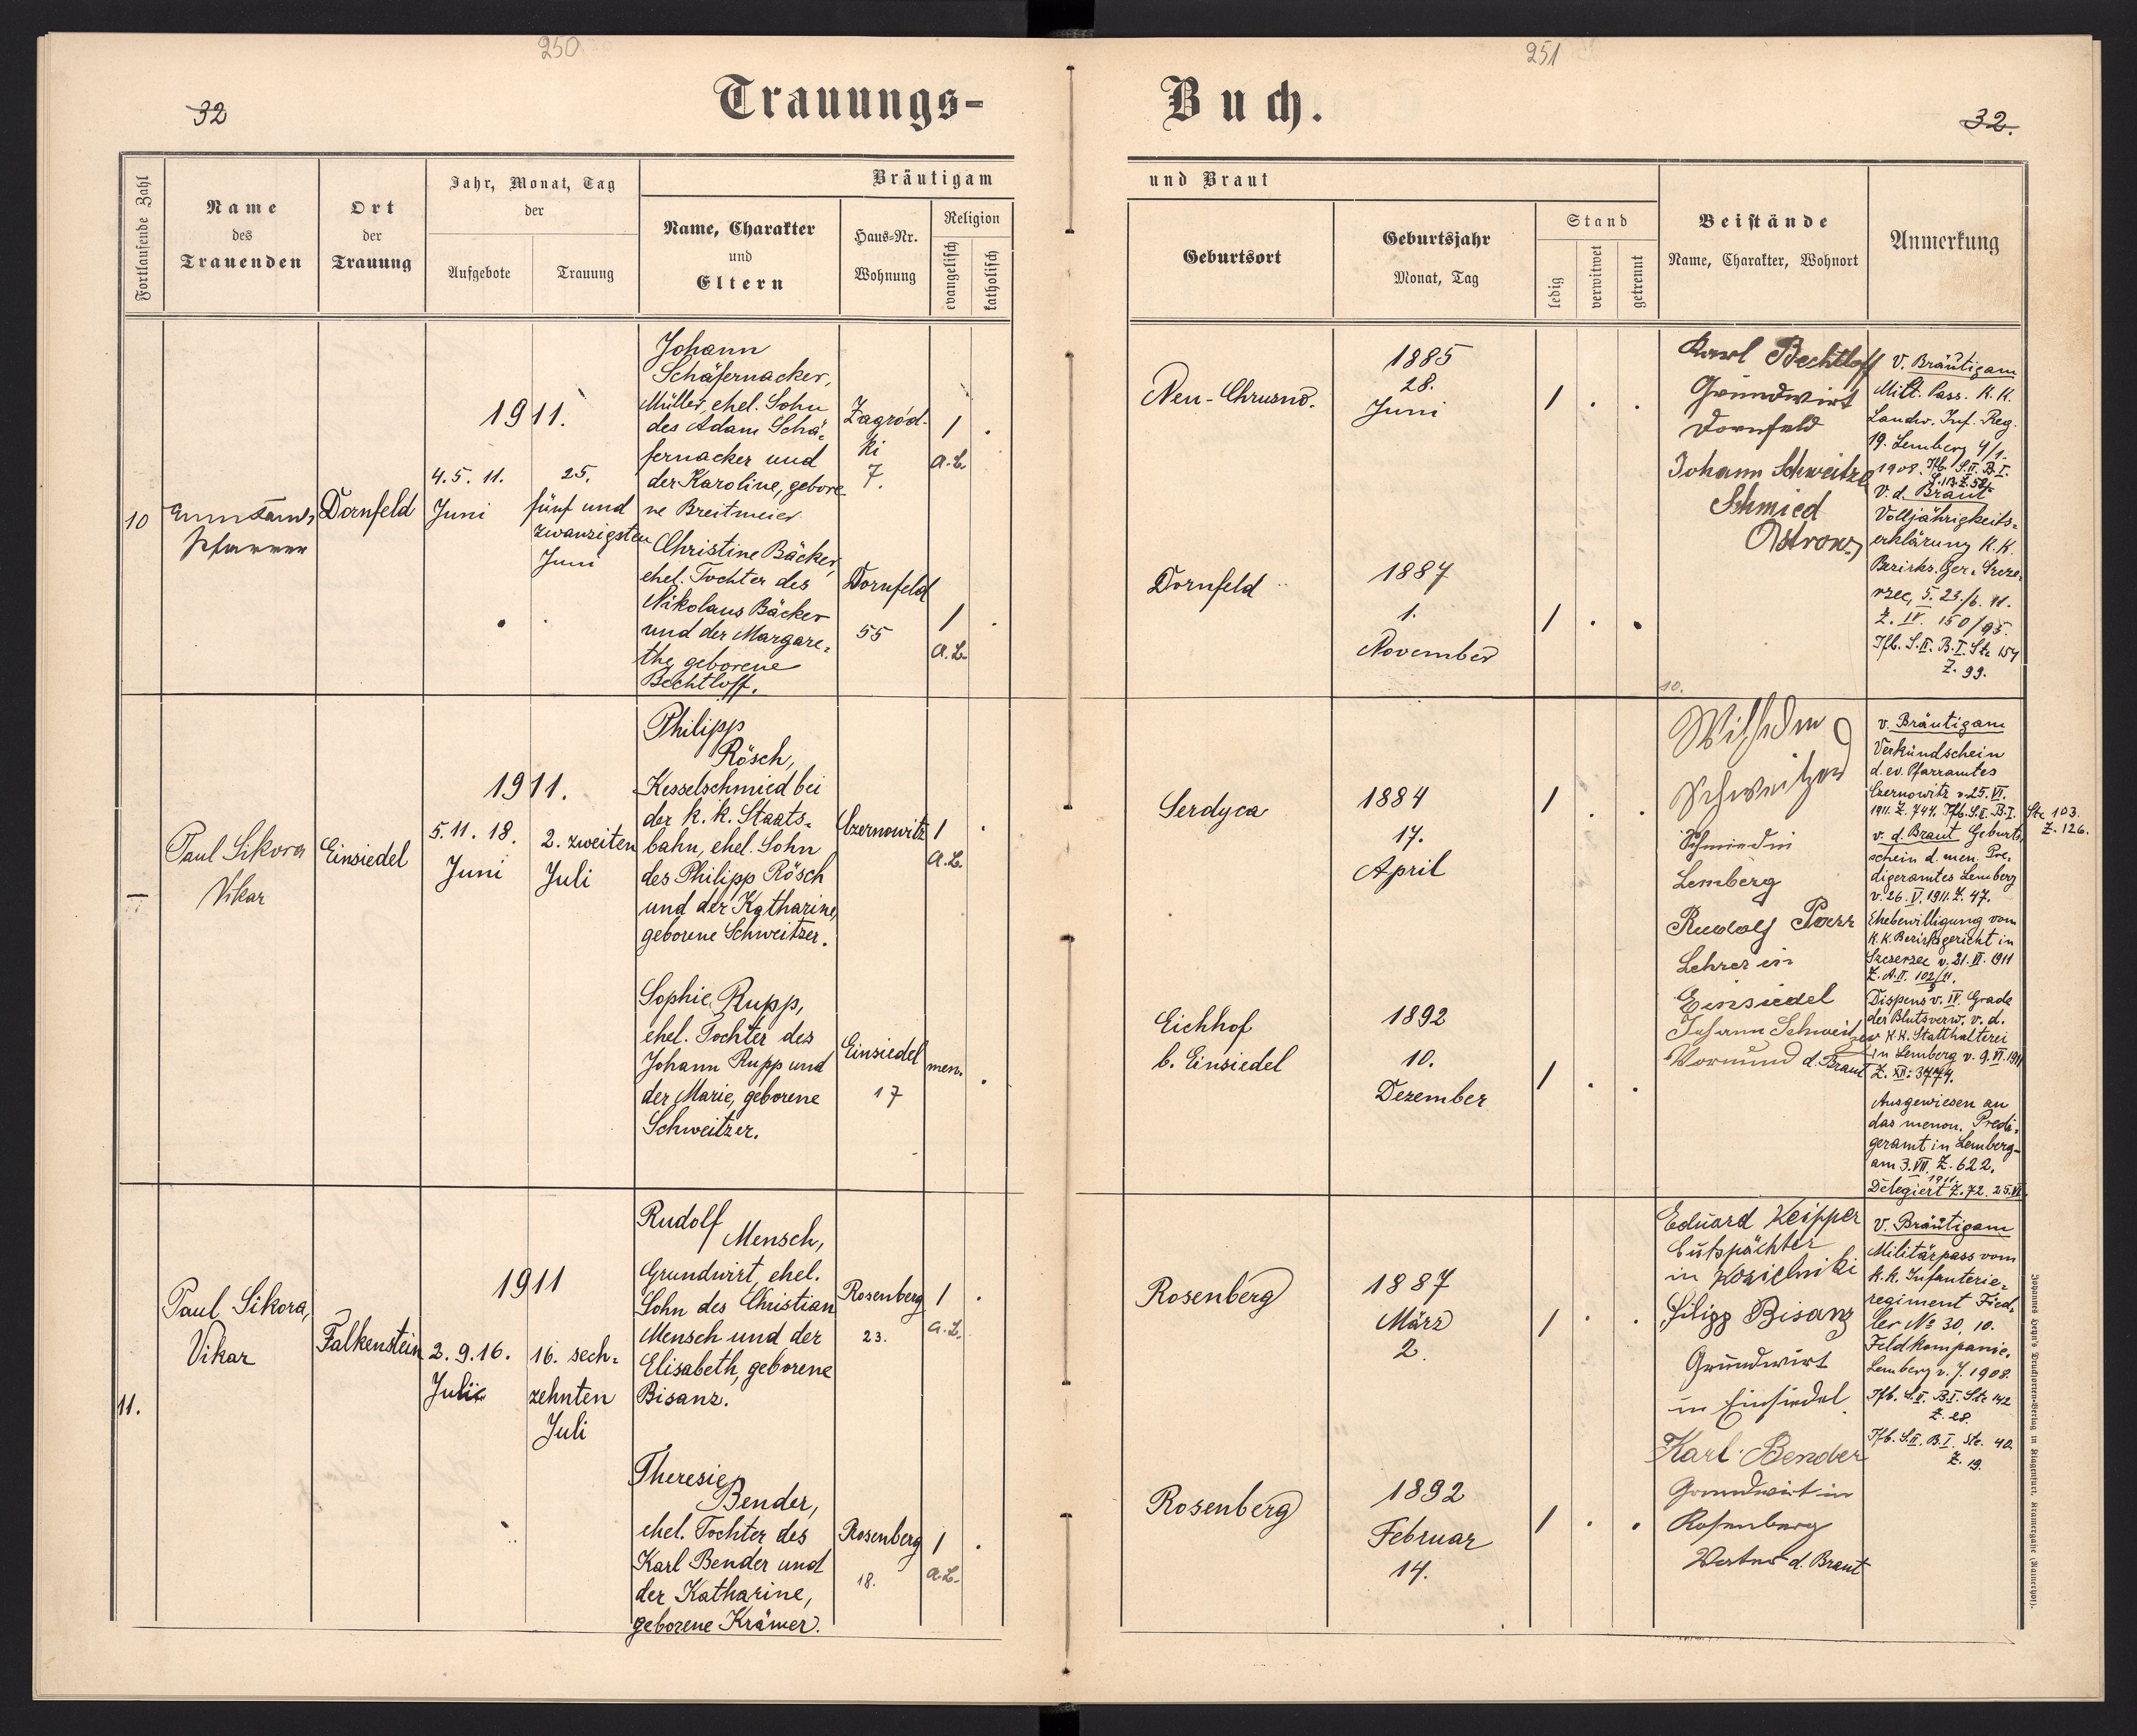 250
32
Trauungs-
Fortlaufende Zahl
Name
des
Trauenden
Ort
der
Trauung
Jahr, Monat, Tag
der
Aufgebote
Trauung
Bräutigam
Name, Charakter
und
Eltern
Haus-Nr.
Wohnung
Religion
evangelisch
katholisch
10
Pfarrer
Dornfeld
1911.
4. 5. 11.
Juni
25.
fünf und
zwanzigsten
Juni
Johann
Schäfernacker,
Müller, ehel. Sohn
des Adam Schä-
fernacker und
der Karoline, gebore-
ne Breitmeier
Zagród-
ki
7.
1
.
A.L.
Christine Bäcker,
ehel. Tochter des
Nikolaus Bäcker
und der Margare-
the geborene
Bechtloff.
Dornfeld
55
1
.
A.L.
—
Paul Sikora
Vikar
Einsiedel
1911.
5. 11. 18.
Juni
2. zweiten
Juli
Philipp
Rösch,
Kesselschmied bei
der k. k. Staats-
bahn, ehel. Sohn
des Philipp Rösch
und der Katharine,
geborene Schweitzer.
Czernowitz
1
.
A.L.
Sophie Rupp,
ehel. Tochter des
Johann Rupp und
der Marie, geborene
Schweitzer.
Einsiedel
17
men.
.
11.
Paul Sikora,
Vikar
Falkenstein
1911
2. 9. 16.
Juli
16. sech-
zehnten
Juli
Rudolf
Mensch,
Grundwirt, ehel.
Sohn des Christian
Mensch und der
Elisabeth, geborene
Bisanz.
Rosenberg
23.
1
.
A.L.
Theresie
Bender,
ehel. Tochter des
Karl Bender und
der Katharine,
geborene Krämer.
Rosenberg
18.
1
.
A.L.
251
Buch.
32.
und Braut
Geburtsort
Geburtsjahr
Monat, Tag
Stand
ledig
verwitwet
getrennt
Beistände
Name, Charakter, Wohnort
Anmerkung
Neu-Chrusno.
1885
28.
Juni
1 . .
Dornfeld
1887
1.
November
1 . .
Karl Bechtloff
Grundwirt
Dornfeld
Johann Schweitzer
Schmied
Ostrow
V. Bräutigam
Milit. Pass. K. K.
Landw. Inf. Reg.
19. Lemberg 4/1.
1908. Tfb. S.II. B.I.
S. 113. Z. 52.
V. d. Braut
Volljährigkeits-
erklärung K. K.
Bezirks. Ger. Szcze-
rzec, 5. 23./6. 11.
Z. IV. 150/95.
Tfb. S.II. B.I. Ste 154
Z. 99.
10.
Serdyca
1884
17.
April
1 . .
Eichhof
b. Einsiedel
1892
10.
Dezember
1 . .
Wilhelm
Schweitzer
Schmied in
Lemberg
Rudolf Porr
Lehrer in
Einsiedel
Johann Schweitzer
Vormund d. Braut
v. Bräutigam
Verkündschein
d. ev. Pfarramtes
Czernowitz v. 25. VI.
1911. Z. 744. Tfb. S.II. B.I. Ste 103.
Z. 126.
v. d. Braut Geburts-
schein d. men. Pre-
digeramtes Lemberg
v. 26. V. 1911. Z. 47.
Ehebewilligung vom
K. K. Bezirksgericht in
Szczerzec v. 21. VI. 1911
Z. A.II. 102/11.
9
Dispens v. IV. Grade
der Blutsverw. v. d.
K. K. Statthalterei
in Lemberg v. 9. VI. 1911
Z. XII: 3774.
Ausgewiesen an
das menon. Predi-
geramt in Lemberg
am 3. VII. Z. 622.
1911.
Delegiert Z. 72. 25. VI.
Rosenberg
1887
März
2.
1 . .
Rosenberg
1892
Februar
14.
1 . .
Eduard Keipper
Gutspächter
in Kozielniki
Filipp Bisanz
Grundwirt
in Einsiedel
Karl Bender
Grundwirt in
Rosenberg
Vater d. Braut
V. Bräutigam
Militärpass vom
k. k. Infanterie-
regiment Fied-
ler № 30, 10.
Feldkompanie.
Lemberg v. J. 1908.
Tfb. S.II. B.I. Ste 142
Z. 28.
Tfb. S.II. B.I. Ste. 40.
Z. 19.
Johannes Heyn's Drucksorten-Verlag in Klagenfurt, Kramergasse (Kramerhof).